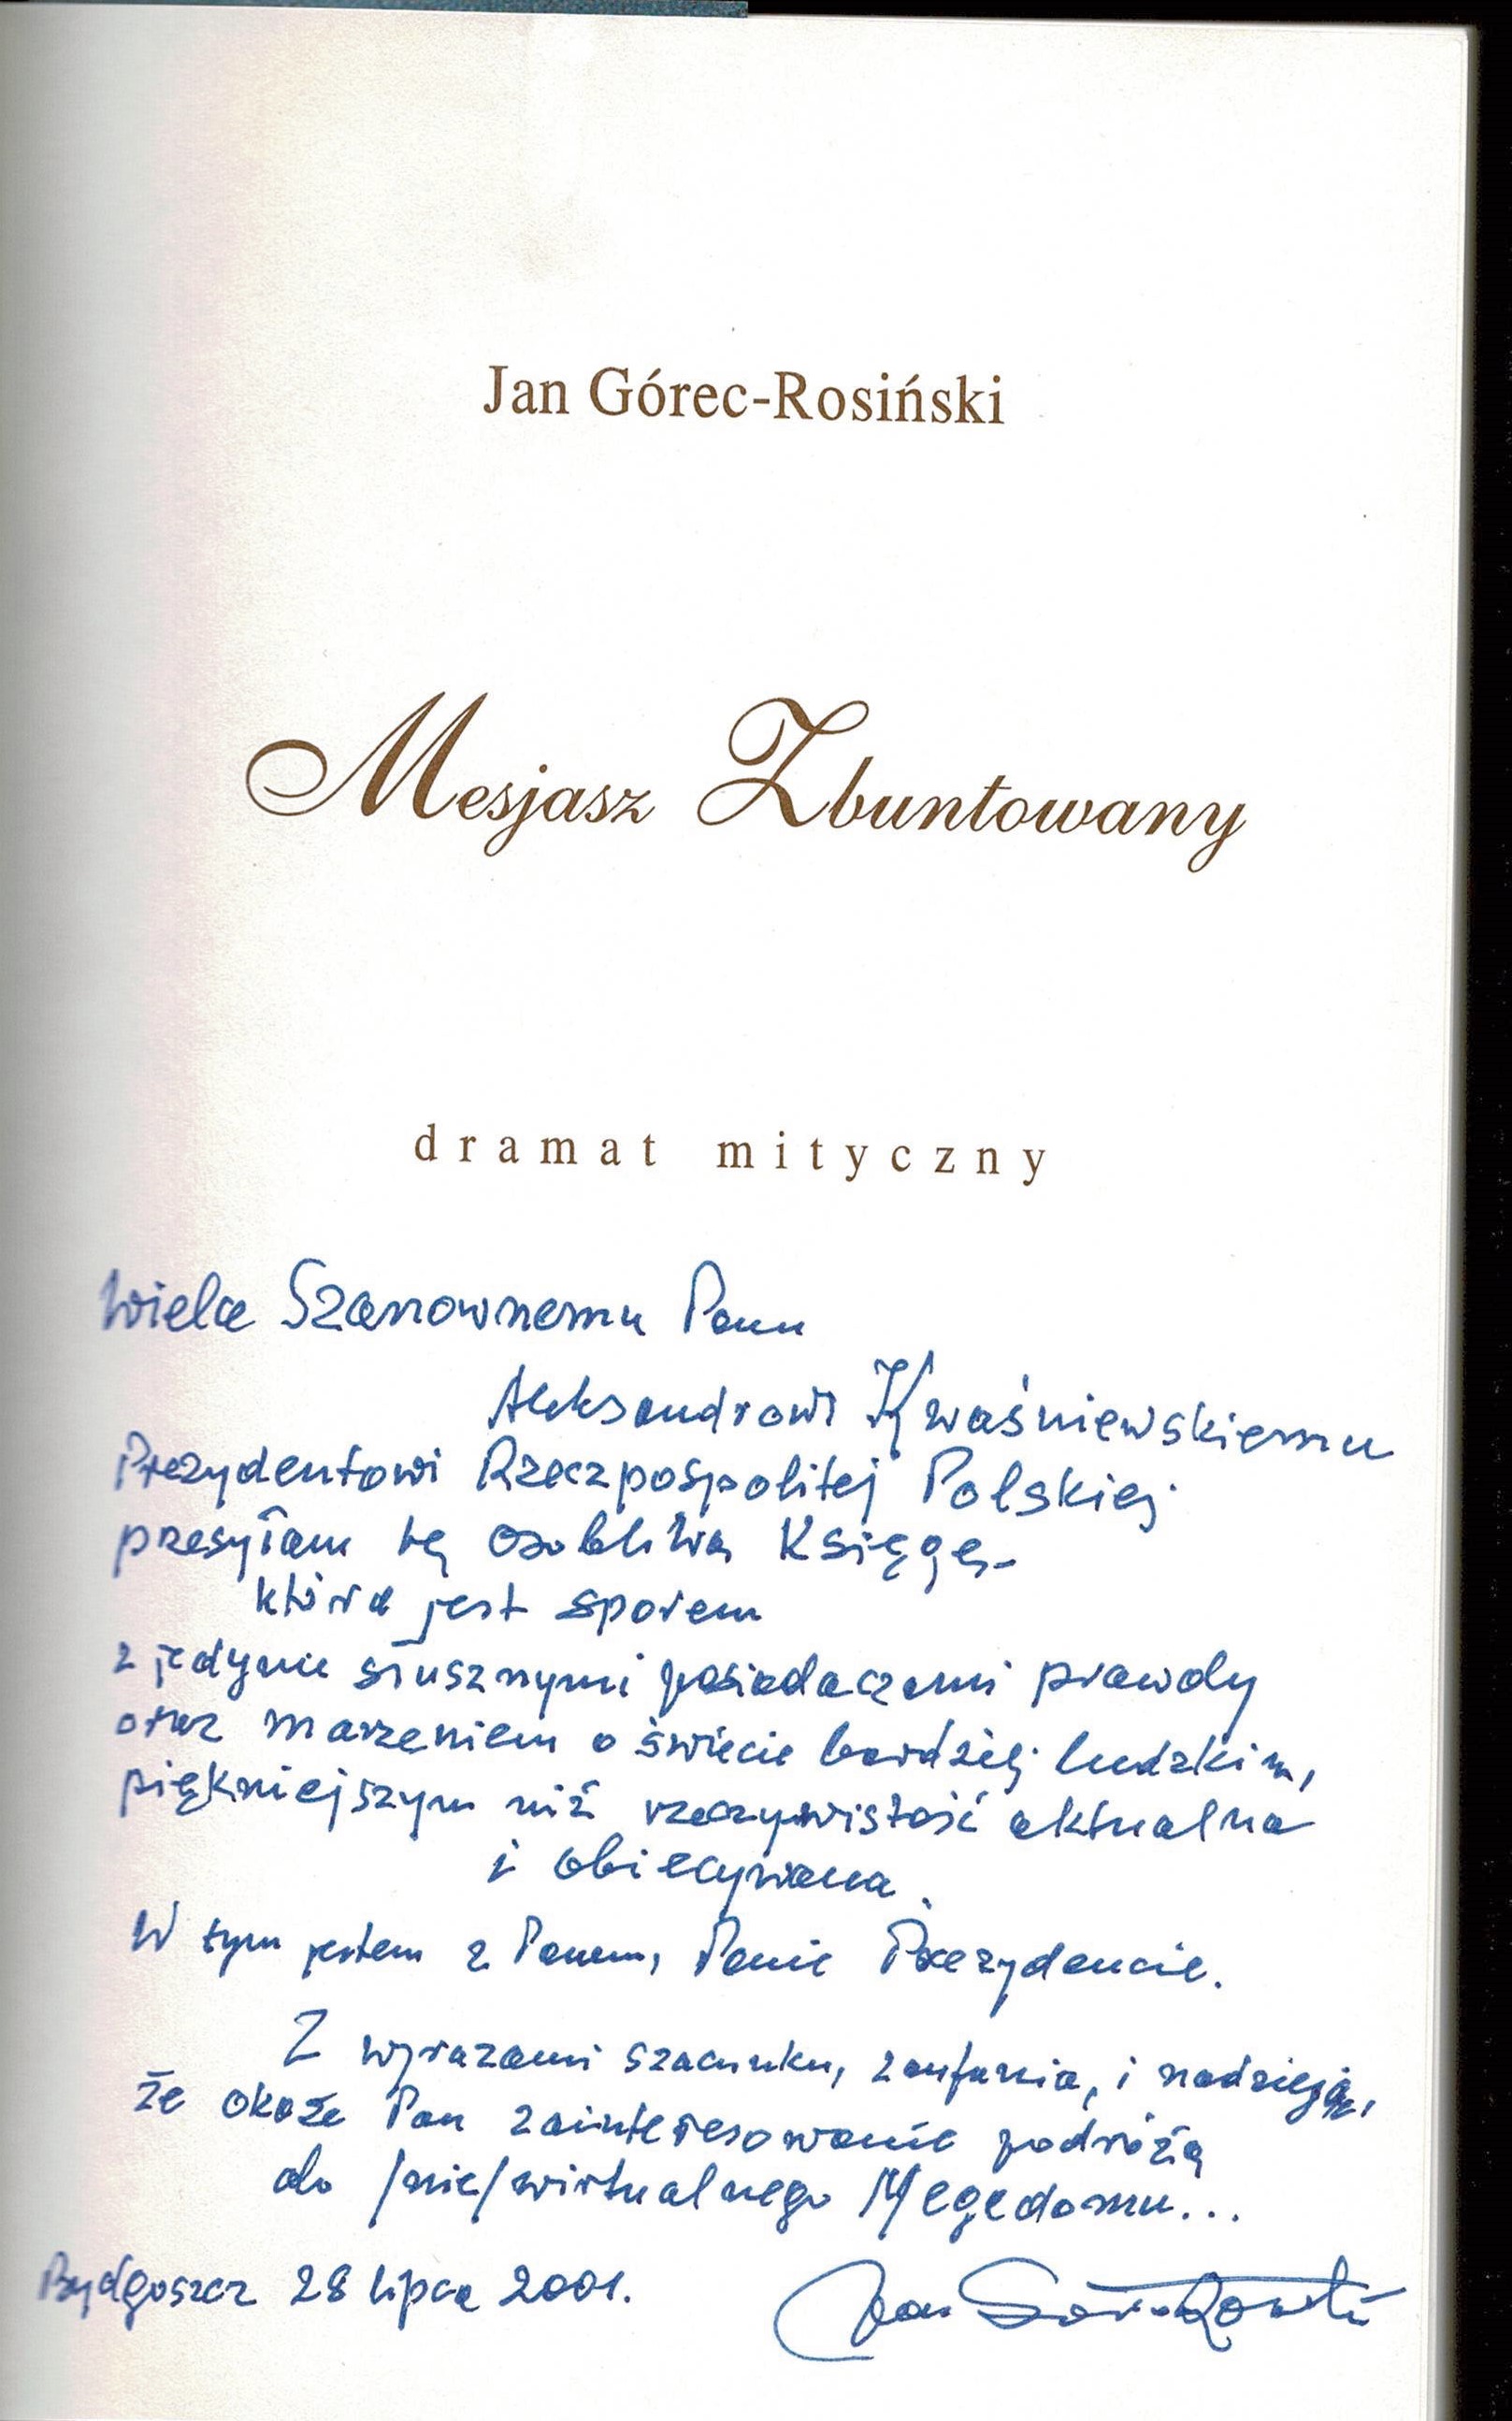 Jan Górec-Rosiński
Mesjasz Zbuntowany
dramat mityczny
Wielce Szanownemu Panu
Aleksandrowi Kwaśniewskiemu
Prezydentowi Rzeczpospolitej Polskiej
przesyłam tę osobliwą Księgę -
która jest sporem
z jedynie słusznymi posiadaczami prawdy
oraz marzeniem o świecie bardziej ludzkim,
piękniejszym niż rzeczywistość aktualna
i obiecywana.
W tym jestem z Panem, Panie Prezydencie.
Z wyrazami szacunku, zaufania, i nadzieją,
że okaże Pan zainteresowanie podróżą
do /nie/wirtualnego Megedomu...
Bydgoszcz 28 lipca 2001.
Jan Górec-Rosiński